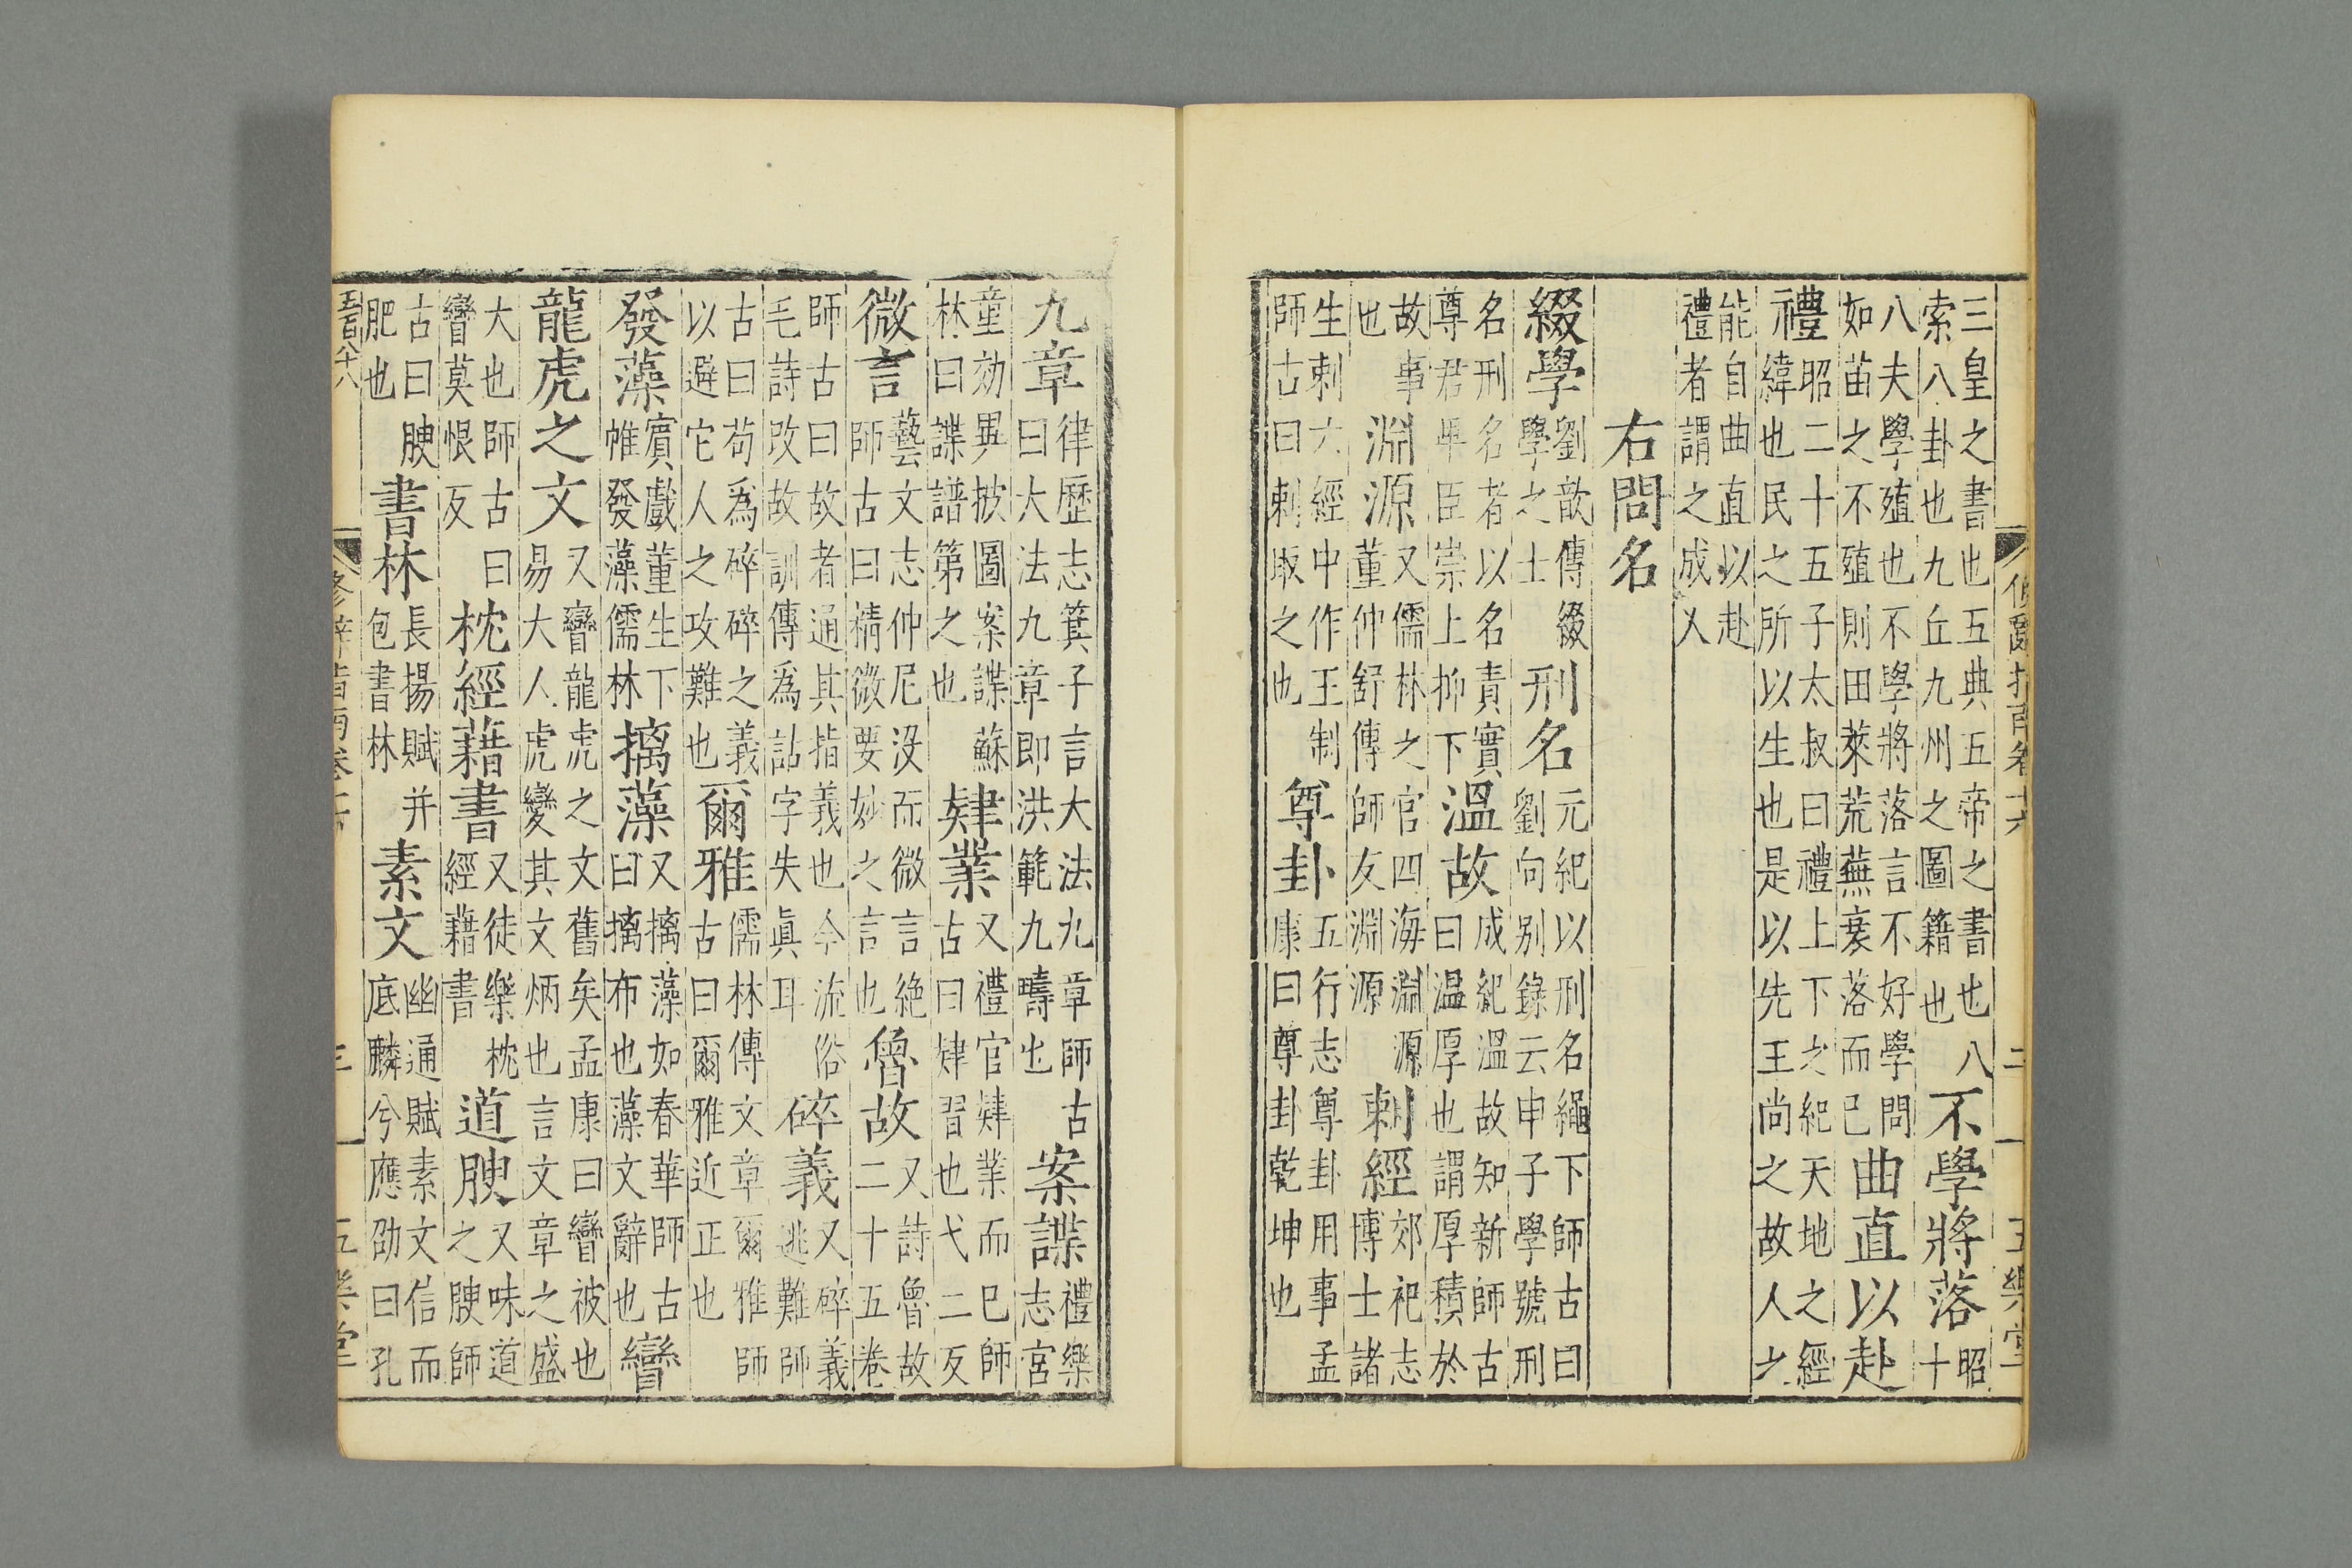 修辭指南卷十六 二 五樂堂
三皇之書也五典五帝之書也八
索八卦也九丘九州之圖籍也
不學將落
昭
十
八夫學殖也不學將落言不好學問
如苗之不殖則田萊荒蕪衰落而已
曲直以赴
禮
昭二十五子太叔曰禮上下之紀天地之經
緯也民之所以生也是以先王尚之故人之
能自曲直以赴
禮者謂之成人
右問名
綴學
劉歆傳綴
學之士
刑名
元紀以刑名繩下師古曰
劉向别錄云申子學號刑
名刑名者以名責實
尊君卑臣崇上抑下
溫故
成紀溫故知新師古
曰温厚也謂厚積於
故事
也
淵源
又儒林之官四海淵源
董仲舒傳師友淵源
刺經
郊祀志
博士諸
生刺六經中作王制
師古曰刺取之也
尊卦
五行志尊卦用事孟
康曰尊卦乾坤也
九章
律歷志箕子言大法九章師古
曰大法九章即洪範九疇也
案諜
禮樂
志宮
童効異披圖案諜蘇
林曰諜譜第之也
肄業
又禮官肄業而已師
古曰肄習也弋二反
微言
藝文志仲尼没而微言絶
師古曰精微要妙之言也
魯故
又詩魯故
二十五卷
師古曰故者通其指義也今流俗
毛詩改故訓傳爲詁字失眞耳
碎義
又碎義
逃難師
古曰苟爲碎碎之義
以避它人之攻難也
爾雅
儒林傳文章爾雅師
古曰爾雅近正也
發藻
賓戲董生下
帷發藻儒林
摛藻
又摛藻如春華師古
曰摛布也藻文辭也
矕
龍虎之文
又矕龍虎之文舊矣孟康曰矕被也
易大人虎變其文炳也言文章之盛
大也師古曰
矕莫恨反
枕經藉書
又徒樂枕
經藉書
道腴
又味道
之腴師
古曰腴
肥也
書林
長揚賦并
包書林
素文
幽通賦素文信而
底麟兮應劭曰孔
修辭指南卷十六 三 五樂堂